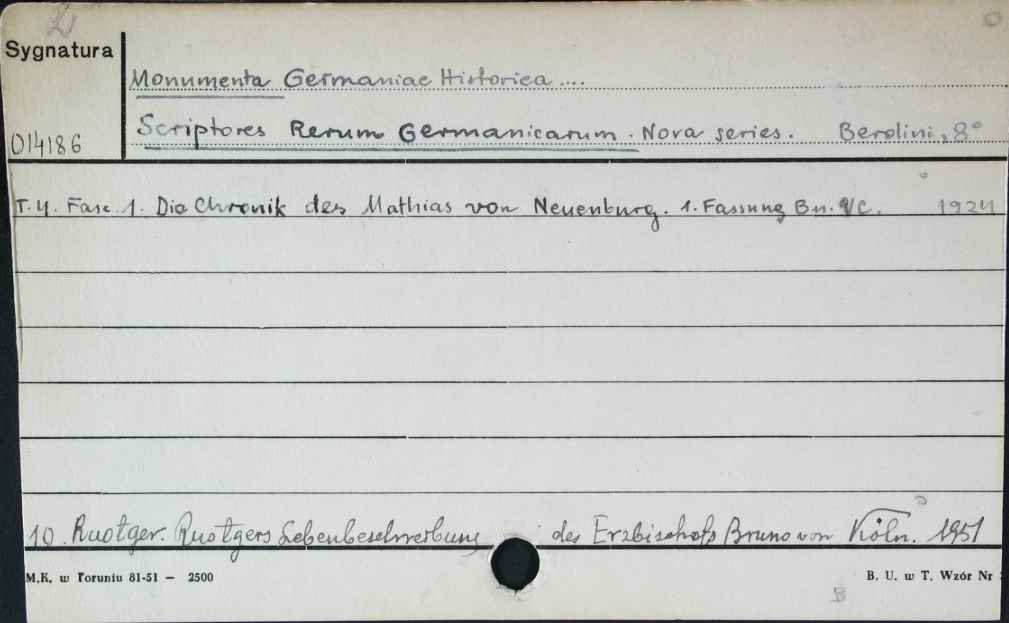 Z
Sygnatura
Monumenta Germaniae Historica ....
014186
Scriptores Rerum Germanicarum. Nova series. Berolini, 8°
T. 4. Fasc. 1. Die Chronik des Mathias von Neuenburg. 1. Fassung Bu. VC. 1924
10. Ruotger. Ruotgers Lebenbeschreibung des Erzbischofs Bruno von Köln. 1951
M.K. w Toruniu 81-51 — 2500
B. U. w T. Wzór Nr
B